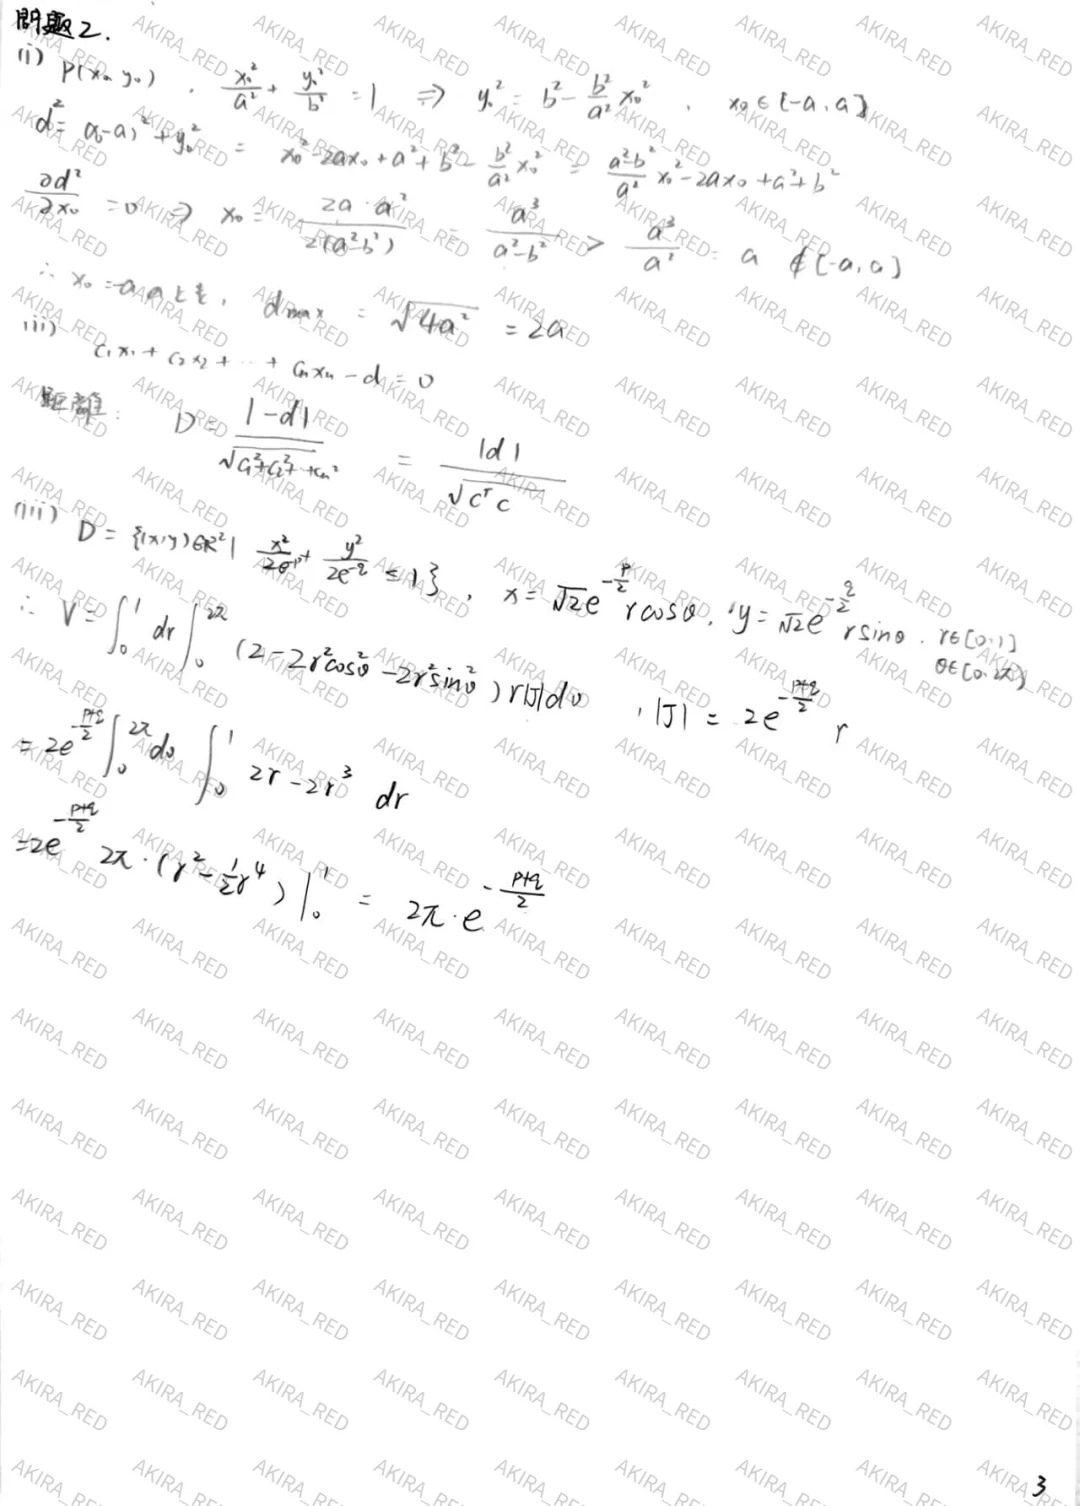 問題2.
(i) P(x₀, y₀), x₀²/a² + y₀²/b² = 1 ⇒ y₀² = b² - b²/a² x₀², x₀ ∈ [-a, a]
d² = (x₀-a)² + y₀² = x₀² - 2ax₀ + a² + b² - b²/a² x₀² = (a²-b²)/a² x₀² - 2ax₀ + a² + b²
∂d²/∂x₀ = 0 ⇒ x₀ = 2a·a²/2(a²-b²) = a³/(a²-b²) > a³/a² = a ∉ [-a, a]
∴ x₀ = -a のとき, d max = √4a² = 2a
(ii) c₁x₁ + c₂x₂ + ··· + cₙxₙ - d = 0
距離: D = |-d|/√(c₁²+c₂²+··+cₙ²) = |d|/√(cᵀc)
(iii) D = {(x,y)∈R² | x²/2e^-p + y²/2e^-q ≤ 1}, x = √2 e^(-p/2) r cosθ, y = √2 e^(-q/2) r sinθ. r∈[0,1]
θ∈[0,2π]
∴ V = ∫₀¹ dr ∫₀^2π (2 - 2r²cos²θ - 2r²sin²θ) r|J| dθ, |J| = 2e^(-(p+q)/2) r
= 2e^(-(p+q)/2) ∫₀^2π dθ ∫₀¹ 2r - 2r³ dr
= 2e^(-(p+q)/2) 2π · (r² - 1/2 r⁴)|₀¹ = 2π · e^(-(p+q)/2)
3
AKIRA_RED